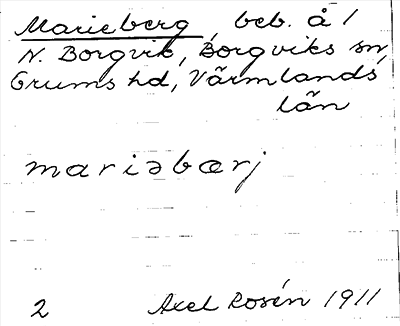 Marieberg, beb. å 1
N. Borgvik, Borgviks sn
Grums hd, Värmlands
län
mariəbærj
2 Axel Rosén 1911